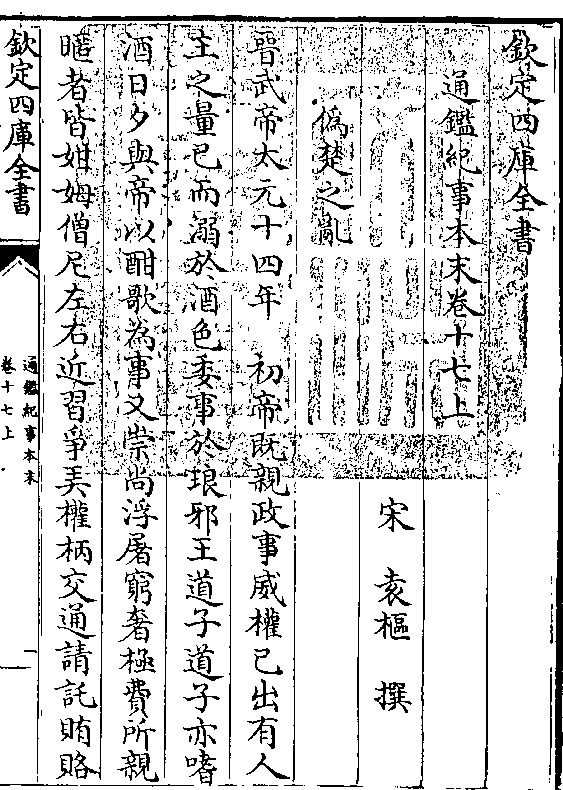 欽定四庫全書
通鑑紀事本末卷十七上
宋 袁樞 撰
僞楚之亂
晉武帝太元十四年 初帝既親政事威權已出有人
主之量已而溺於酒色委事於琅邪王道子道子亦嗜
酒日夕與帝以酣歌為事又崇尚浮屠窮奢極費所親
暱者皆姏姆僧尼左右近習爭弄權柄交通請託賄賂
欽定四庫全書
通鑑紀事本末
卷十七上
一